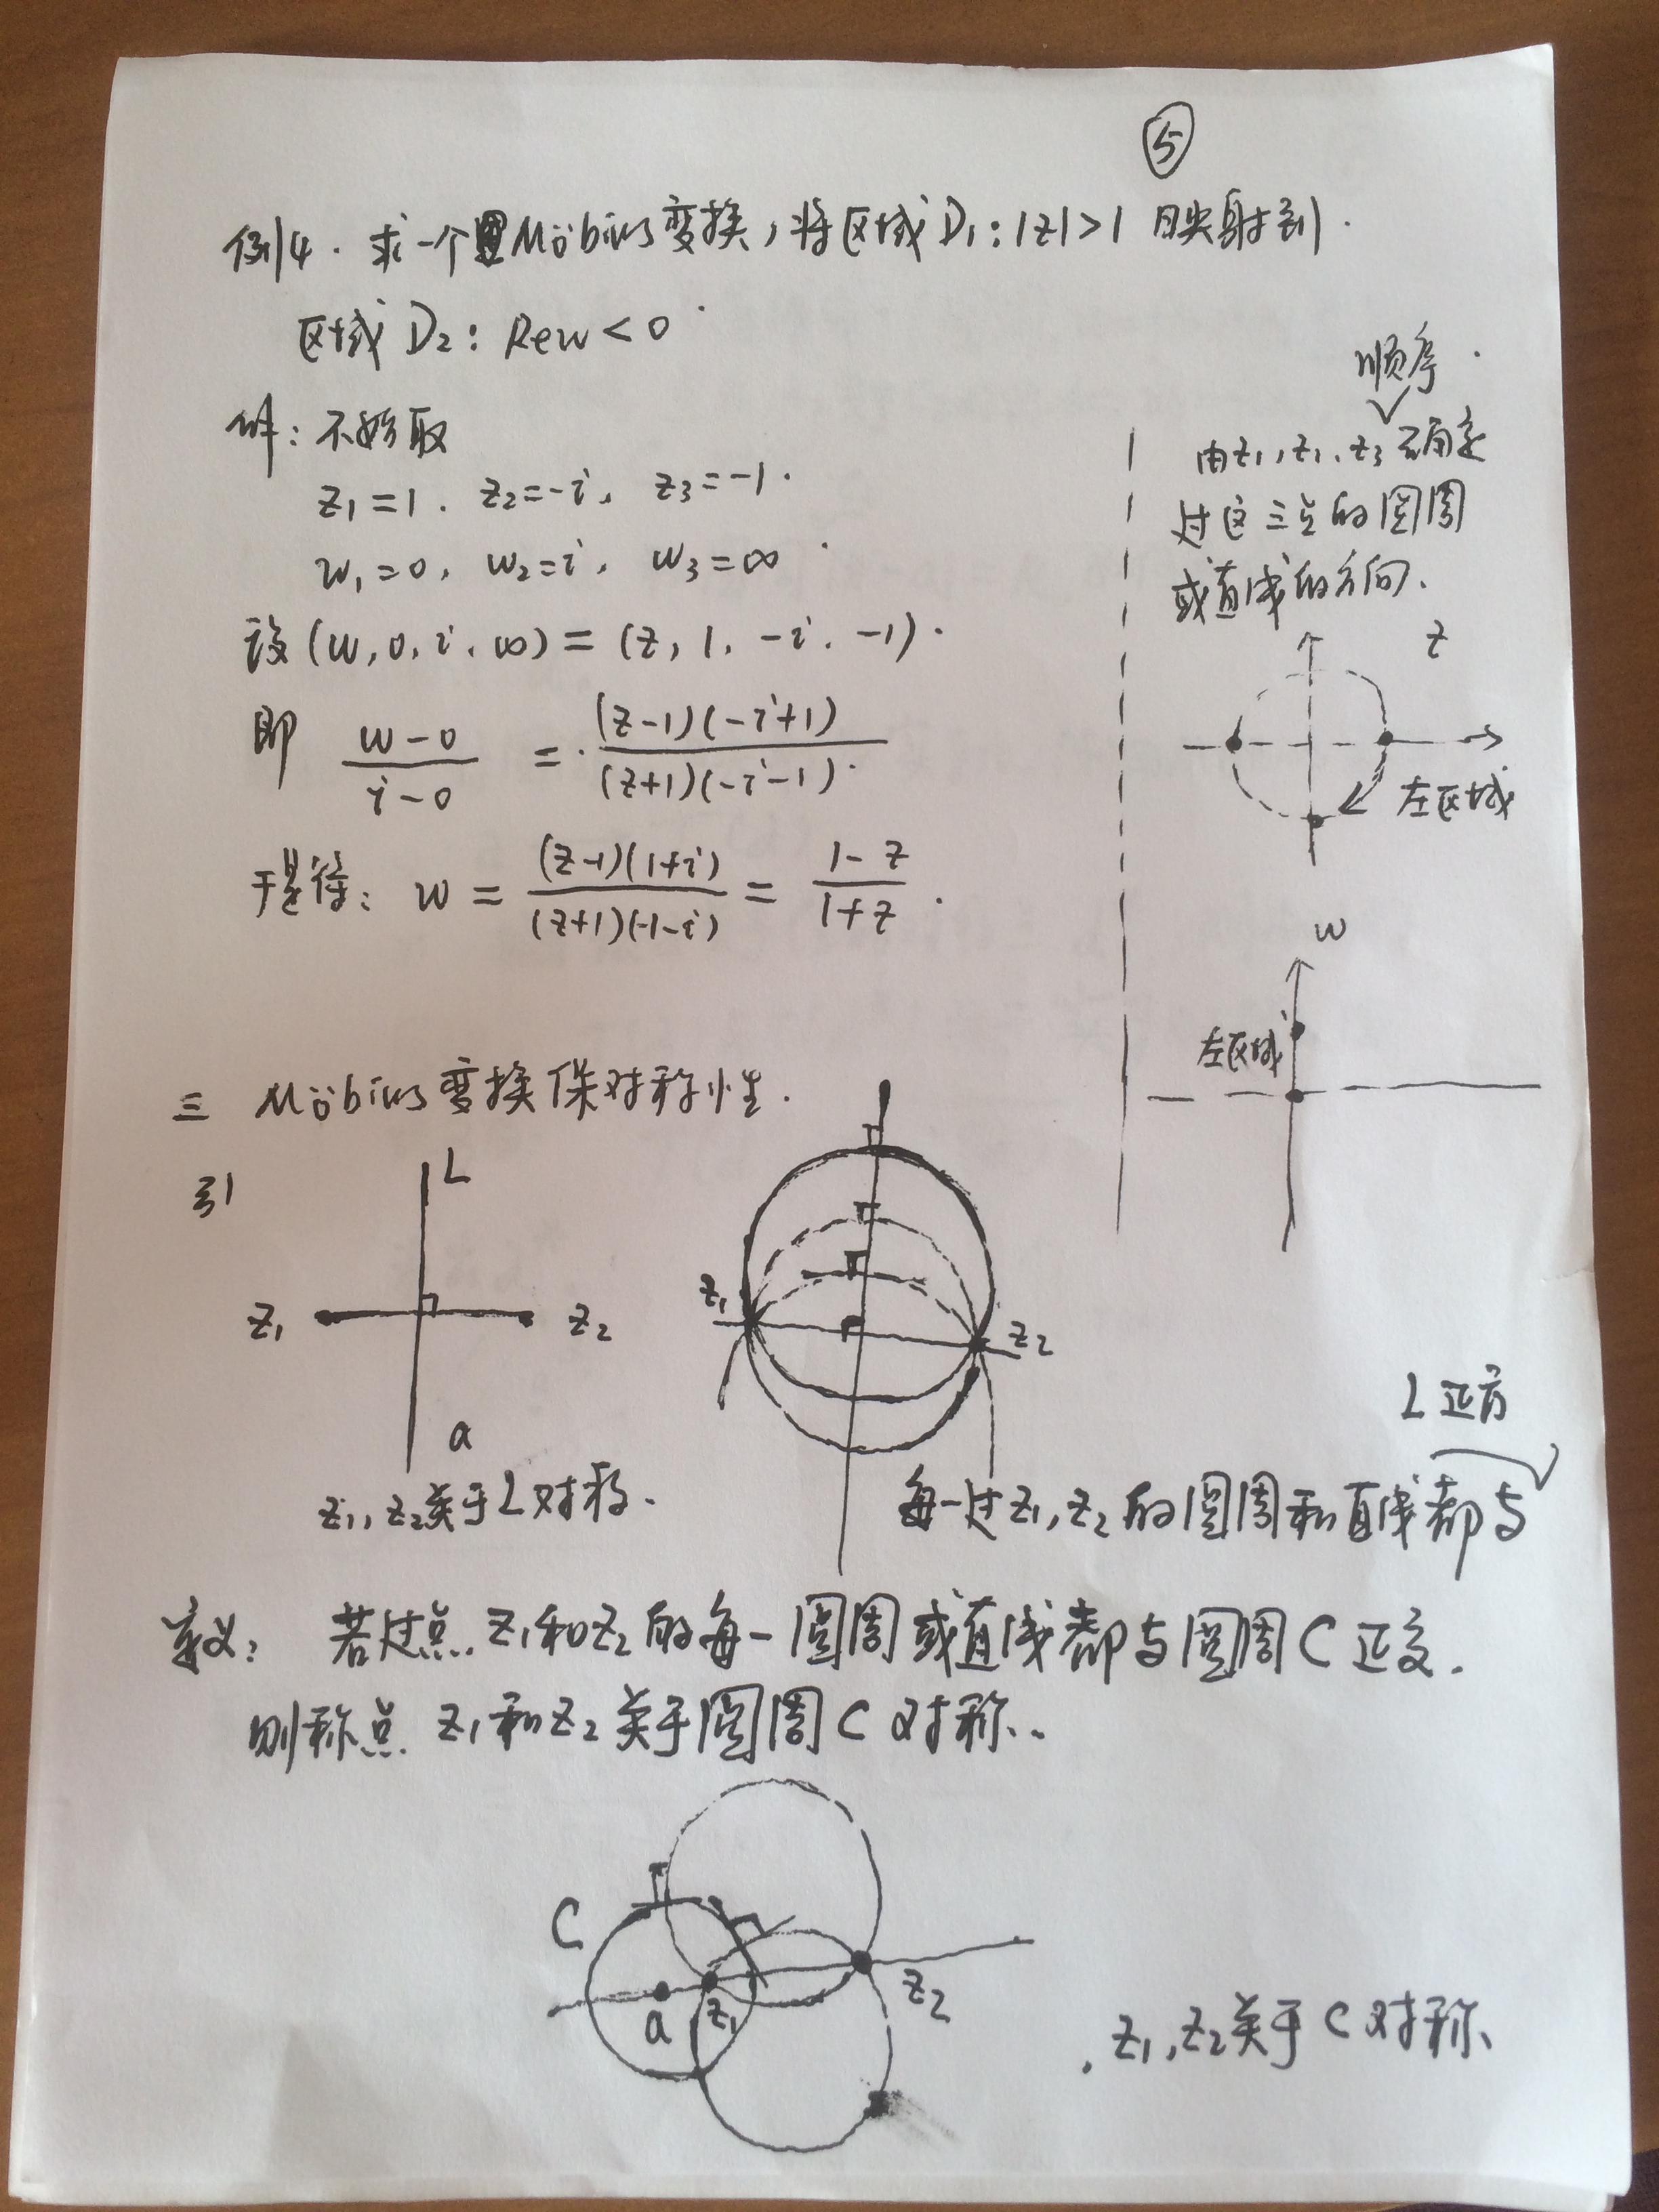 ⑤
例4. 求一个Möbius变换，将区域 D₁: |z|>1 映射到.
区域 D₂: Rew<0
解: 不妨取
z₁=1. z₂=-i, z₃=-1.
w₁=0, w₂=i, w₃=∞
设 (w, 0, i, ∞) = (z, 1, -i, -1).
即 (w-0)/(i-0) = (z-1)(-i+1)/(z+1)(-i-1).
于是得: w = (z-1)(1+i)/(z+1)(-1-i) = (1-z)/(1+z).
顺序.
由z₁, z₂, z₃ 确定
过这三点的圆周
或直线的方向.
z
左区域
w
左区域
三 Möbius变换保对称性.
引
L
z₁
z₂
a
z₁, z₂关于L对称.
z₁
z₂
L正交
每一过z₁, z₂的圆周和直线都与
定义: 若过点 z₁和z₂的每一圆周或直线都与圆周C正交.
则称点 z₁和z₂关于圆周C对称.
C
a
z₁
z₂
z₁, z₂关于C对称、